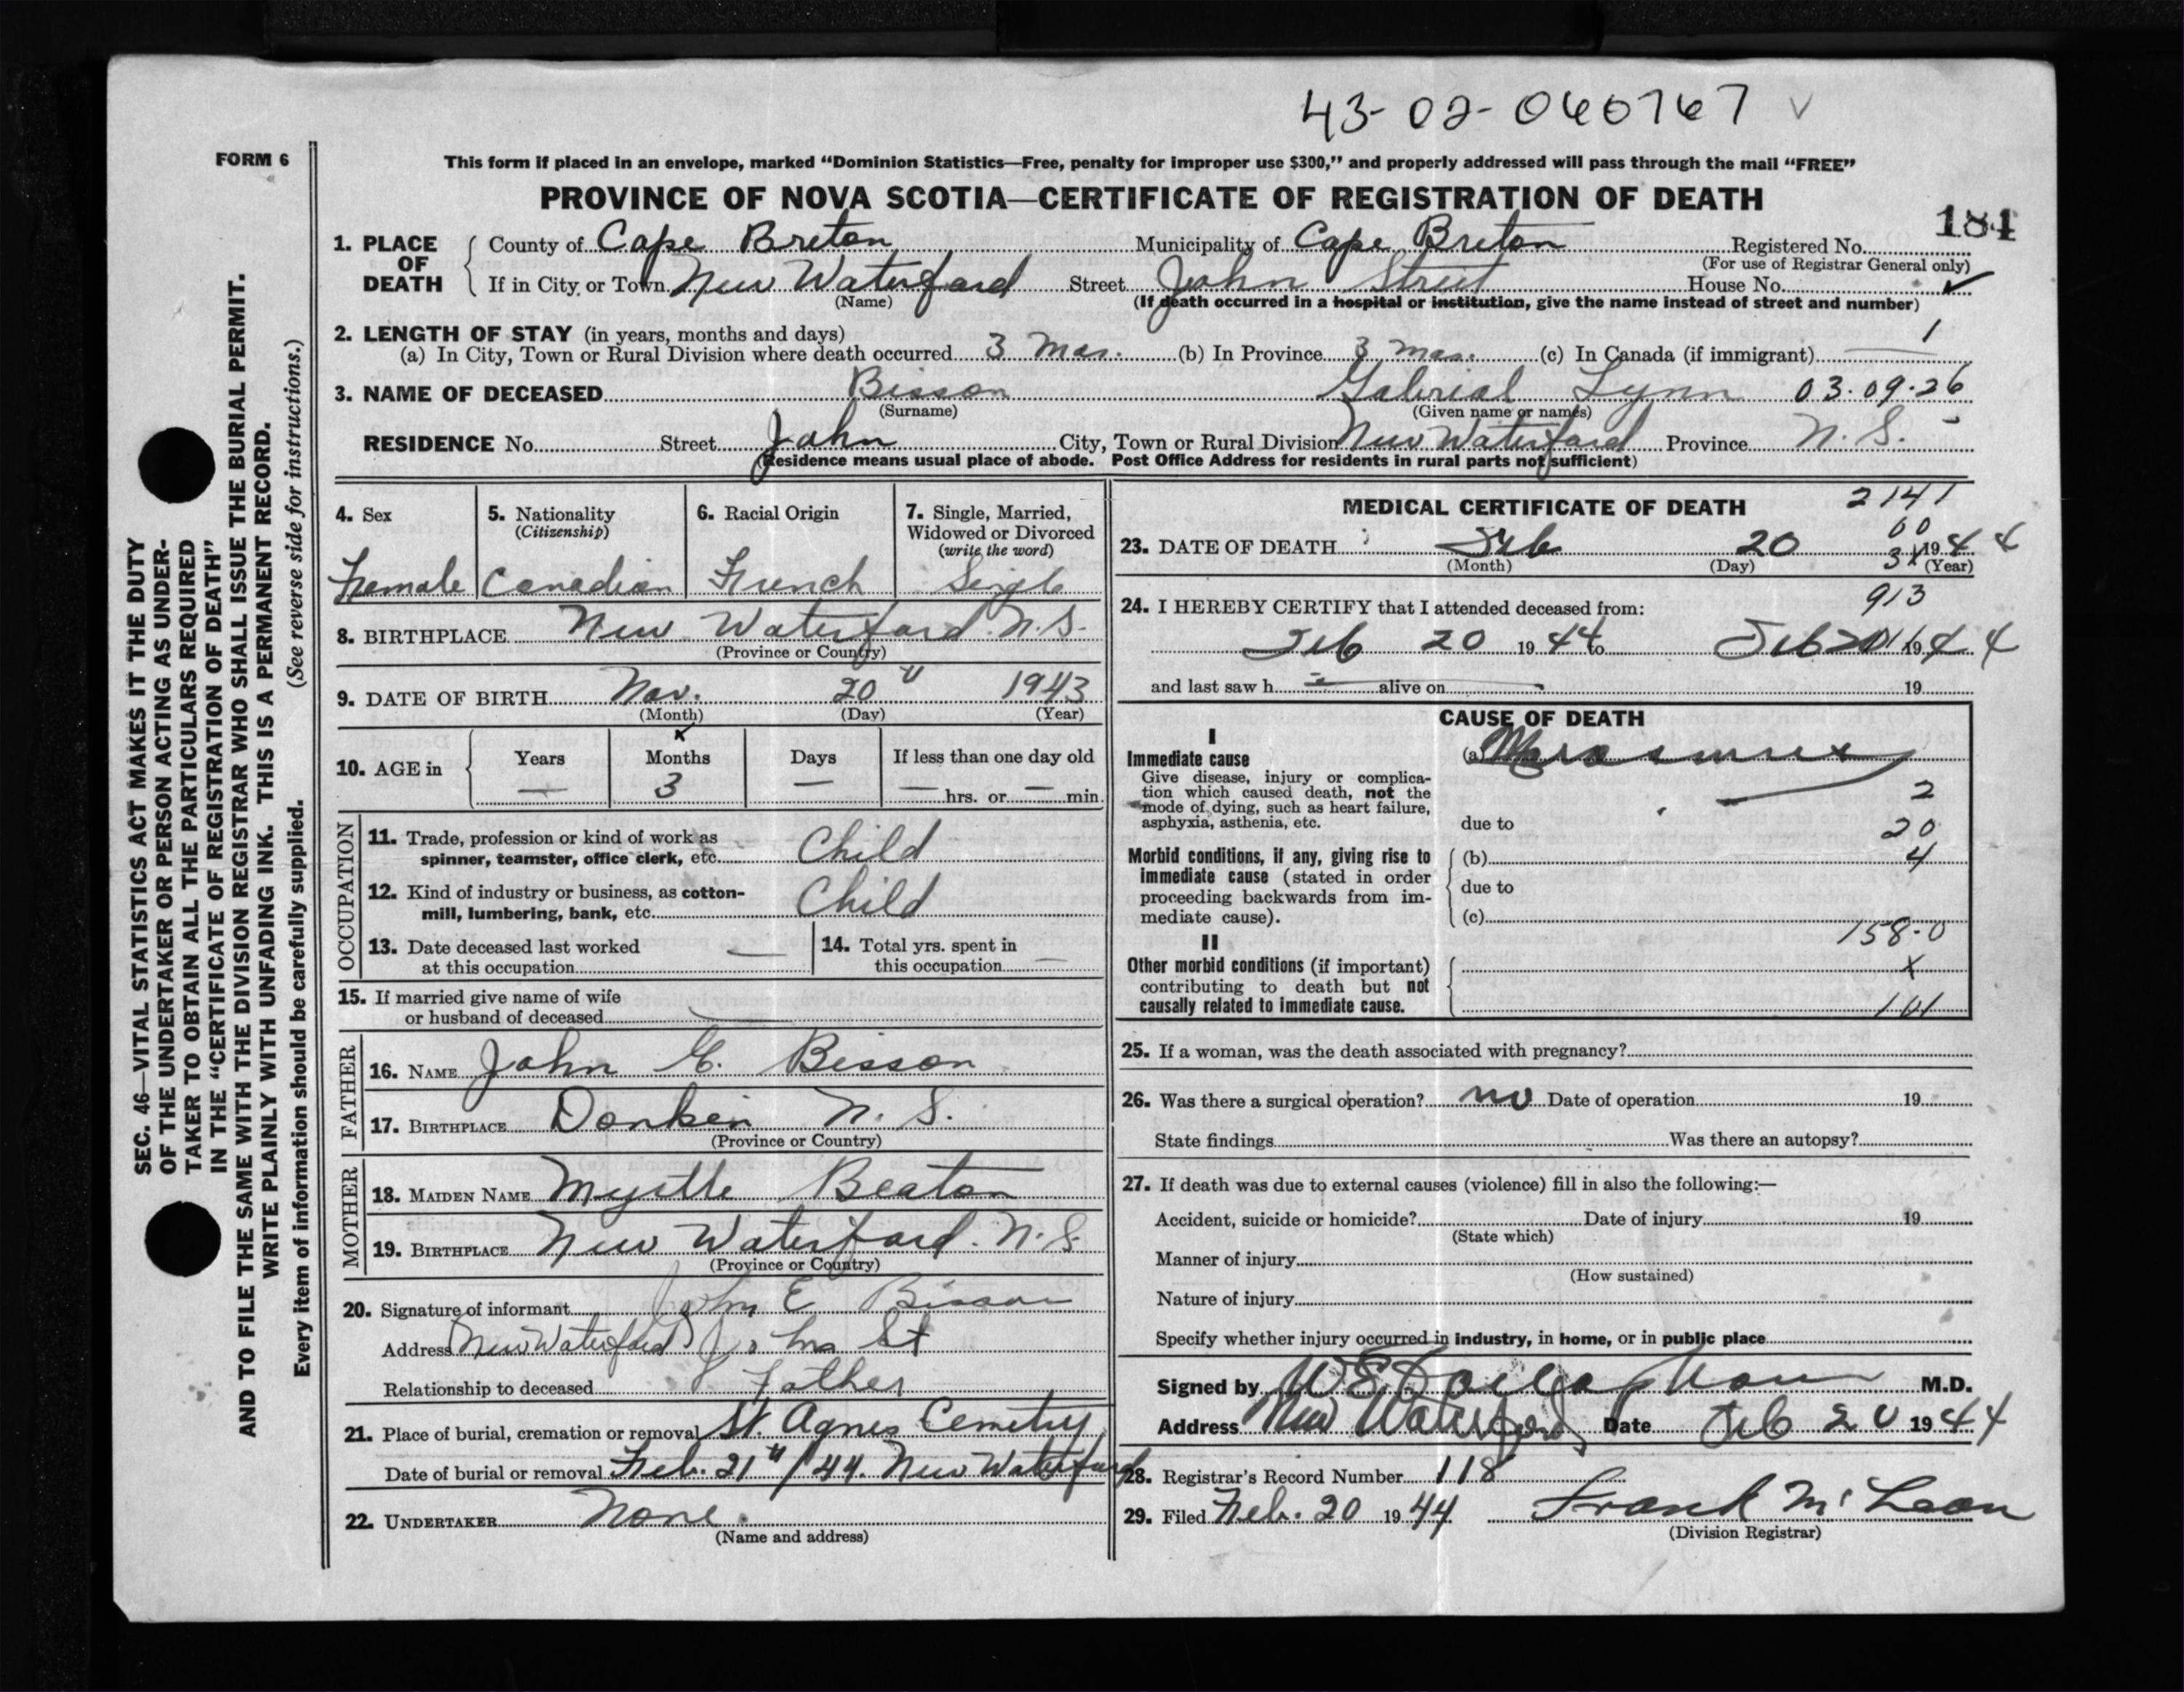 43-02-060767 V
FORM 6
This form if placed in an envelope, marked “Dominion Statistics—Free, penalty for improper use $300,” and properly addressed will pass through the mail “FREE”
PROVINCE OF NOVA SCOTIA—CERTIFICATE OF REGISTRATION OF DEATH
184
1. PLACE OF DEATH
County of Cape Breton Municipality of Cape Breton Registered No.
(For use of Registrar General only)
If in City or Town New Waterford Street John Street House No.
(Name) (If death occurred in a hospital or institution, give the name instead of street and number)
2. LENGTH OF STAY (in years, months and days) 1
(a) In City, Town or Rural Division where death occurred 3 Mos. (b) In Province 3 Mos. (c) In Canada (if immigrant) —
3. NAME OF DECEASED Bisson Gabrial Lynn 03-09-26
(Surname) (Given name or names)
RESIDENCE No. Street John City, Town or Rural Division New Waterford Province N. S.
(Residence means usual place of abode. Post Office Address for residents in rural parts not sufficient)
4. Sex
Female
5. Nationality
(Citizenship)
Canadian
6. Racial Origin
French
7. Single, Married,
Widowed or Divorced
(write the word)
8. BIRTHPLACE New Waterford. N.S.
(Province or Country)
9. DATE OF BIRTH Nov. 20 1943
(Month) (Day) (Year)
10. AGE in
Years Months Days If less than one day old
— 3 — — hrs. or — min.
OCCUPATION
11. Trade, profession or kind of work as
spinner, teamster, office clerk, etc. Child
12. Kind of industry or business, as cotton-
mill, lumbering, bank, etc. Child
13. Date deceased last worked
at this occupation —
14. Total yrs. spent in
this occupation —
15. If married give name of wife
or husband of deceased —
FATHER
16. NAME John E. Bisson
17. BIRTHPLACE Donkin N. S.
(Province or Country)
MOTHER
18. MAIDEN NAME Myrtle Beaton
19. BIRTHPLACE New Waterford. N.S.
(Province or Country)
20. Signature of informant John E Bisson
Address New Waterford Johns St
Relationship to deceased Father
21. Place of burial, cremation or removal St. Agnes Cemetry
Date of burial or removal Feb. 21"/44. New Waterford
22. UNDERTAKER None.
(Name and address)
MEDICAL CERTIFICATE OF DEATH 2141
23. DATE OF DEATH Feb 20 1944
(Month) (Day) (Year)
24. I HEREBY CERTIFY that I attended deceased from: 913
Feb 20 1944 to Feb 20 1944
and last saw h alive on 19
CAUSE OF DEATH
I
Immediate cause
Give disease, injury or complica-
tion which caused death, not the
mode of dying, such as heart failure,
asphyxia, asthenia, etc.
(a) Marasmus
2
due to
20
Morbid conditions, if any, giving rise to
immediate cause (stated in order
proceeding backwards from im-
mediate cause).
(b) 4
due to
(c)
158-0
II
Other morbid conditions (if important)
contributing to death but not
causally related to immediate cause.
X
101
25. If a woman, was the death associated with pregnancy?
26. Was there a surgical operation? no Date of operation 19
State findings Was there an autopsy?
27. If death was due to external causes (violence) fill in also the following:—
Accident, suicide or homicide? Date of injury 19
(State which)
Manner of injury
(How sustained)
Nature of injury
Specify whether injury occurred in industry, in home, or in public place
Signed by M.D.
Address New Waterford Date Feb 20 1944
28. Registrar's Record Number 118
29. Filed Feb. 20 1944 Frank McLean
(Division Registrar)
SEC. 46—VITAL STATISTICS ACT MAKES IT THE DUTY
OF THE UNDERTAKER OR PERSON ACTING AS UNDER-
TAKER TO OBTAIN ALL THE PARTICULARS REQUIRED
IN THE “CERTIFICATE OF REGISTRATION OF DEATH”
AND TO FILE THE SAME WITH THE DIVISION REGISTRAR WHO SHALL ISSUE THE BURIAL PERMIT.
WRITE PLAINLY WITH UNFADING INK. THIS IS A PERMANENT RECORD.
Every item of information should be carefully supplied. (See reverse side for instructions.)